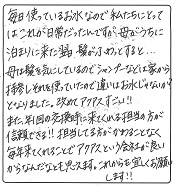 毎日使っているお水なので私たちにとって
はこれが日常だったんですが、母がうちに
泊まりに来た時、髪がすると…
母は髪を気にしているのでシャンプーなどは家から
持参しそれを使っていたので違いはお水じゃない?
となりました。改めてアクアスすごい!!
また、年1回の交換時に来てくれる担当の方が
信頼できる!!担当してる方がかわることなく
毎年来てくれることでアクアスという会社が良い
からなんだなとも思えます。これからも宜しくお願い
します!!